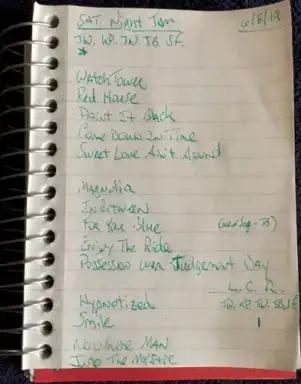 SAT. Night Jam 6/8/19
JW. KP. JN JB. SF.
*
WATCH Tower
Red House
Paint It Black
Come Down In Time
Sweet Love Ain't Around
Magnolia
In Between
For You Blue
Enjoy The Ride
Possession Over Judgement Day
L. C. R.
Hypnotized
Smile 1
Nowhere MAN
Into The Mystic